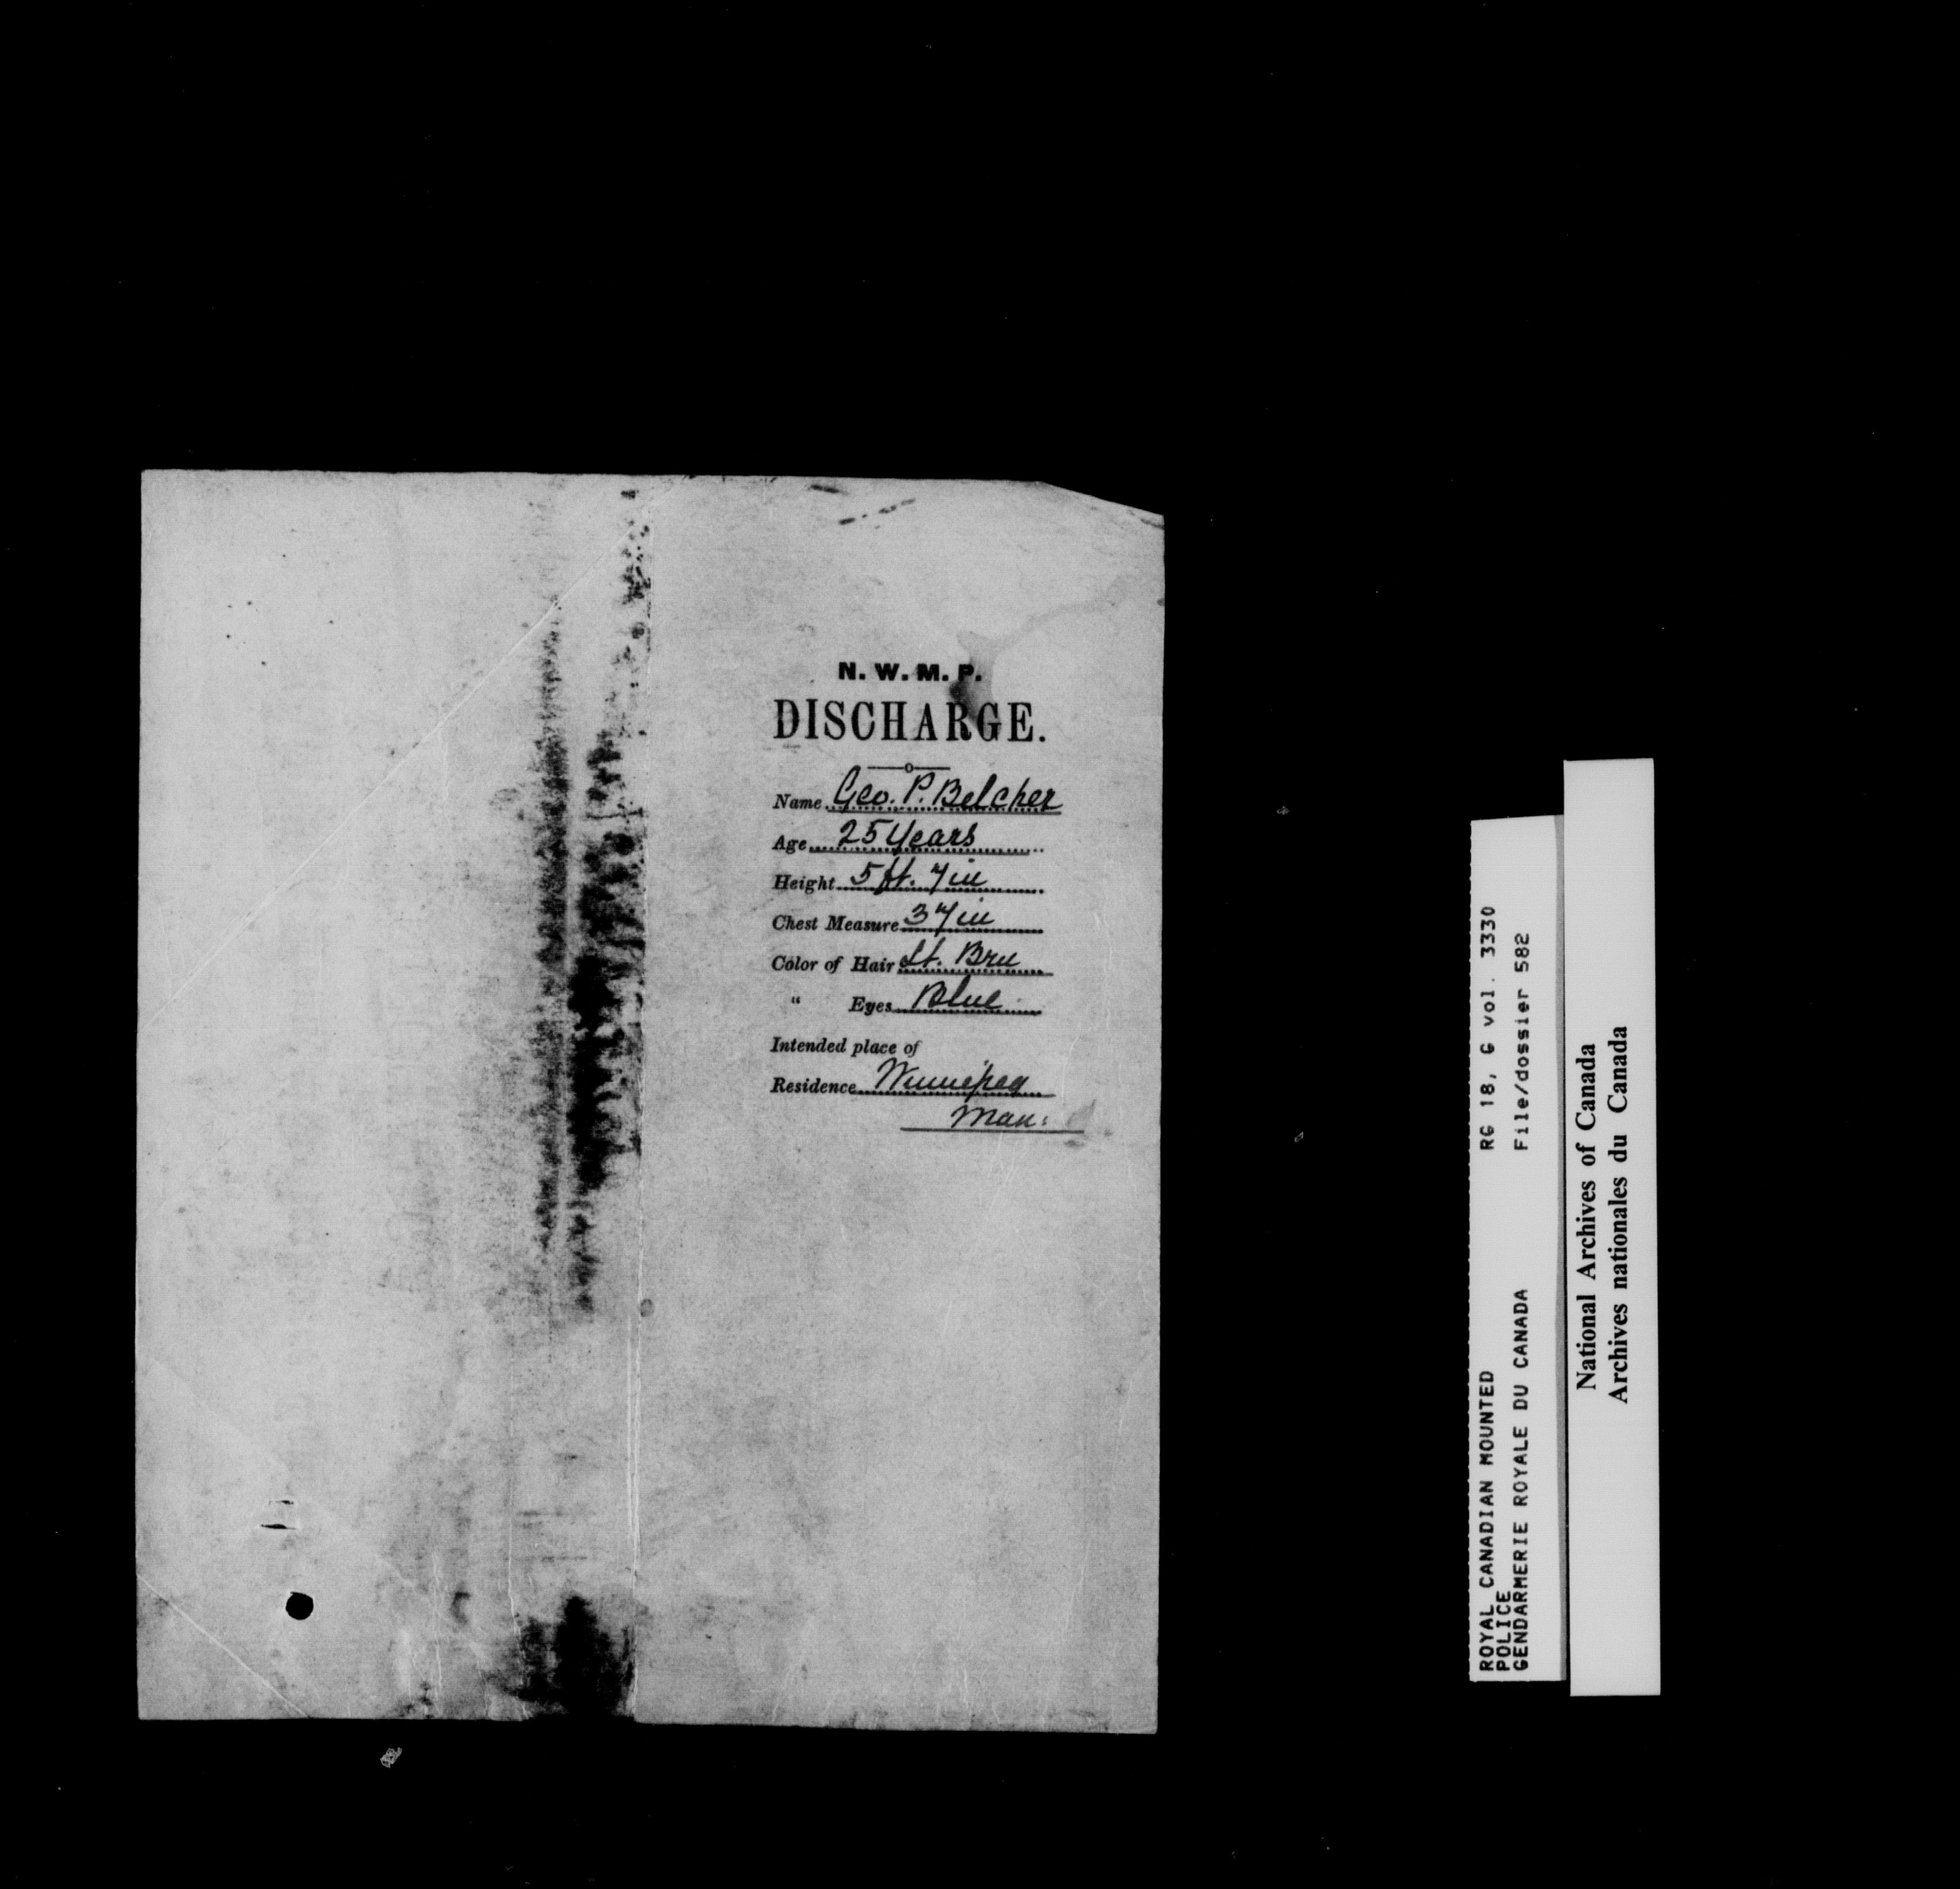 N. W. M. P.
DISCHARGE.
Name Geo. P. Belcher
Age 25 Years
Height 5 ft. 7 in
Chest Measure 37 in
Color of Hair Lt. Brn
" Eyes Blue
Intended place of
Residence Winnipeg
Man:
ROYAL CANADIAN MOUNTED RG 18, G vol. 3330
POLICE
GENDARMERIE ROYALE DU CANADA File/dossier 582
National Archives of Canada
Archives nationales du Canada